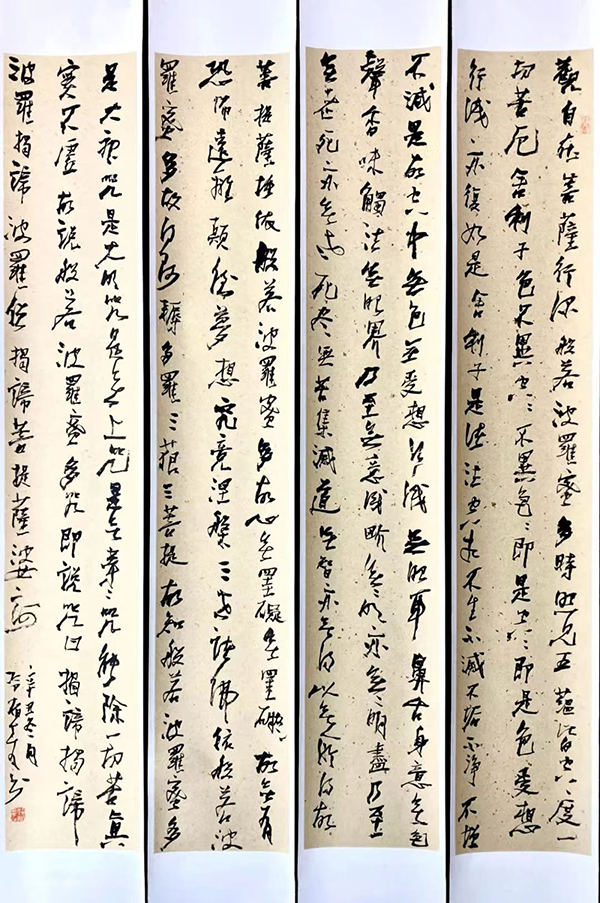 觀自在菩薩行深般若波羅蜜多時照見五蘊皆空〻度一
切苦厄舍利子色不異空〻不異色〻即是空〻即是色受想
行識亦復如是舍利子是諸法空相不生不滅不垢不淨不增
不減是故空中無色無受想行識無眼耳鼻舌身意無色
聲香味觸法無眼界乃至無意識界無〻明亦無〻明盡乃至
無老死亦無老死盡無苦集滅道無智亦無得以無所得故
菩提薩埵依般若波羅蜜多故心無罣礙無罣礙故無有
恐怖遠離顛倒夢想究竟涅槃三世諸佛依般若波
羅蜜多故得阿耨多羅三藐三菩提故知般若波羅蜜多
是大神咒是大明咒是無上咒是無等〻咒能除一切苦真
實不虛故說般若波羅蜜多咒即說咒曰揭諦揭諦
波羅揭諦波羅僧揭諦菩提薩婆訶
辛丑冬月